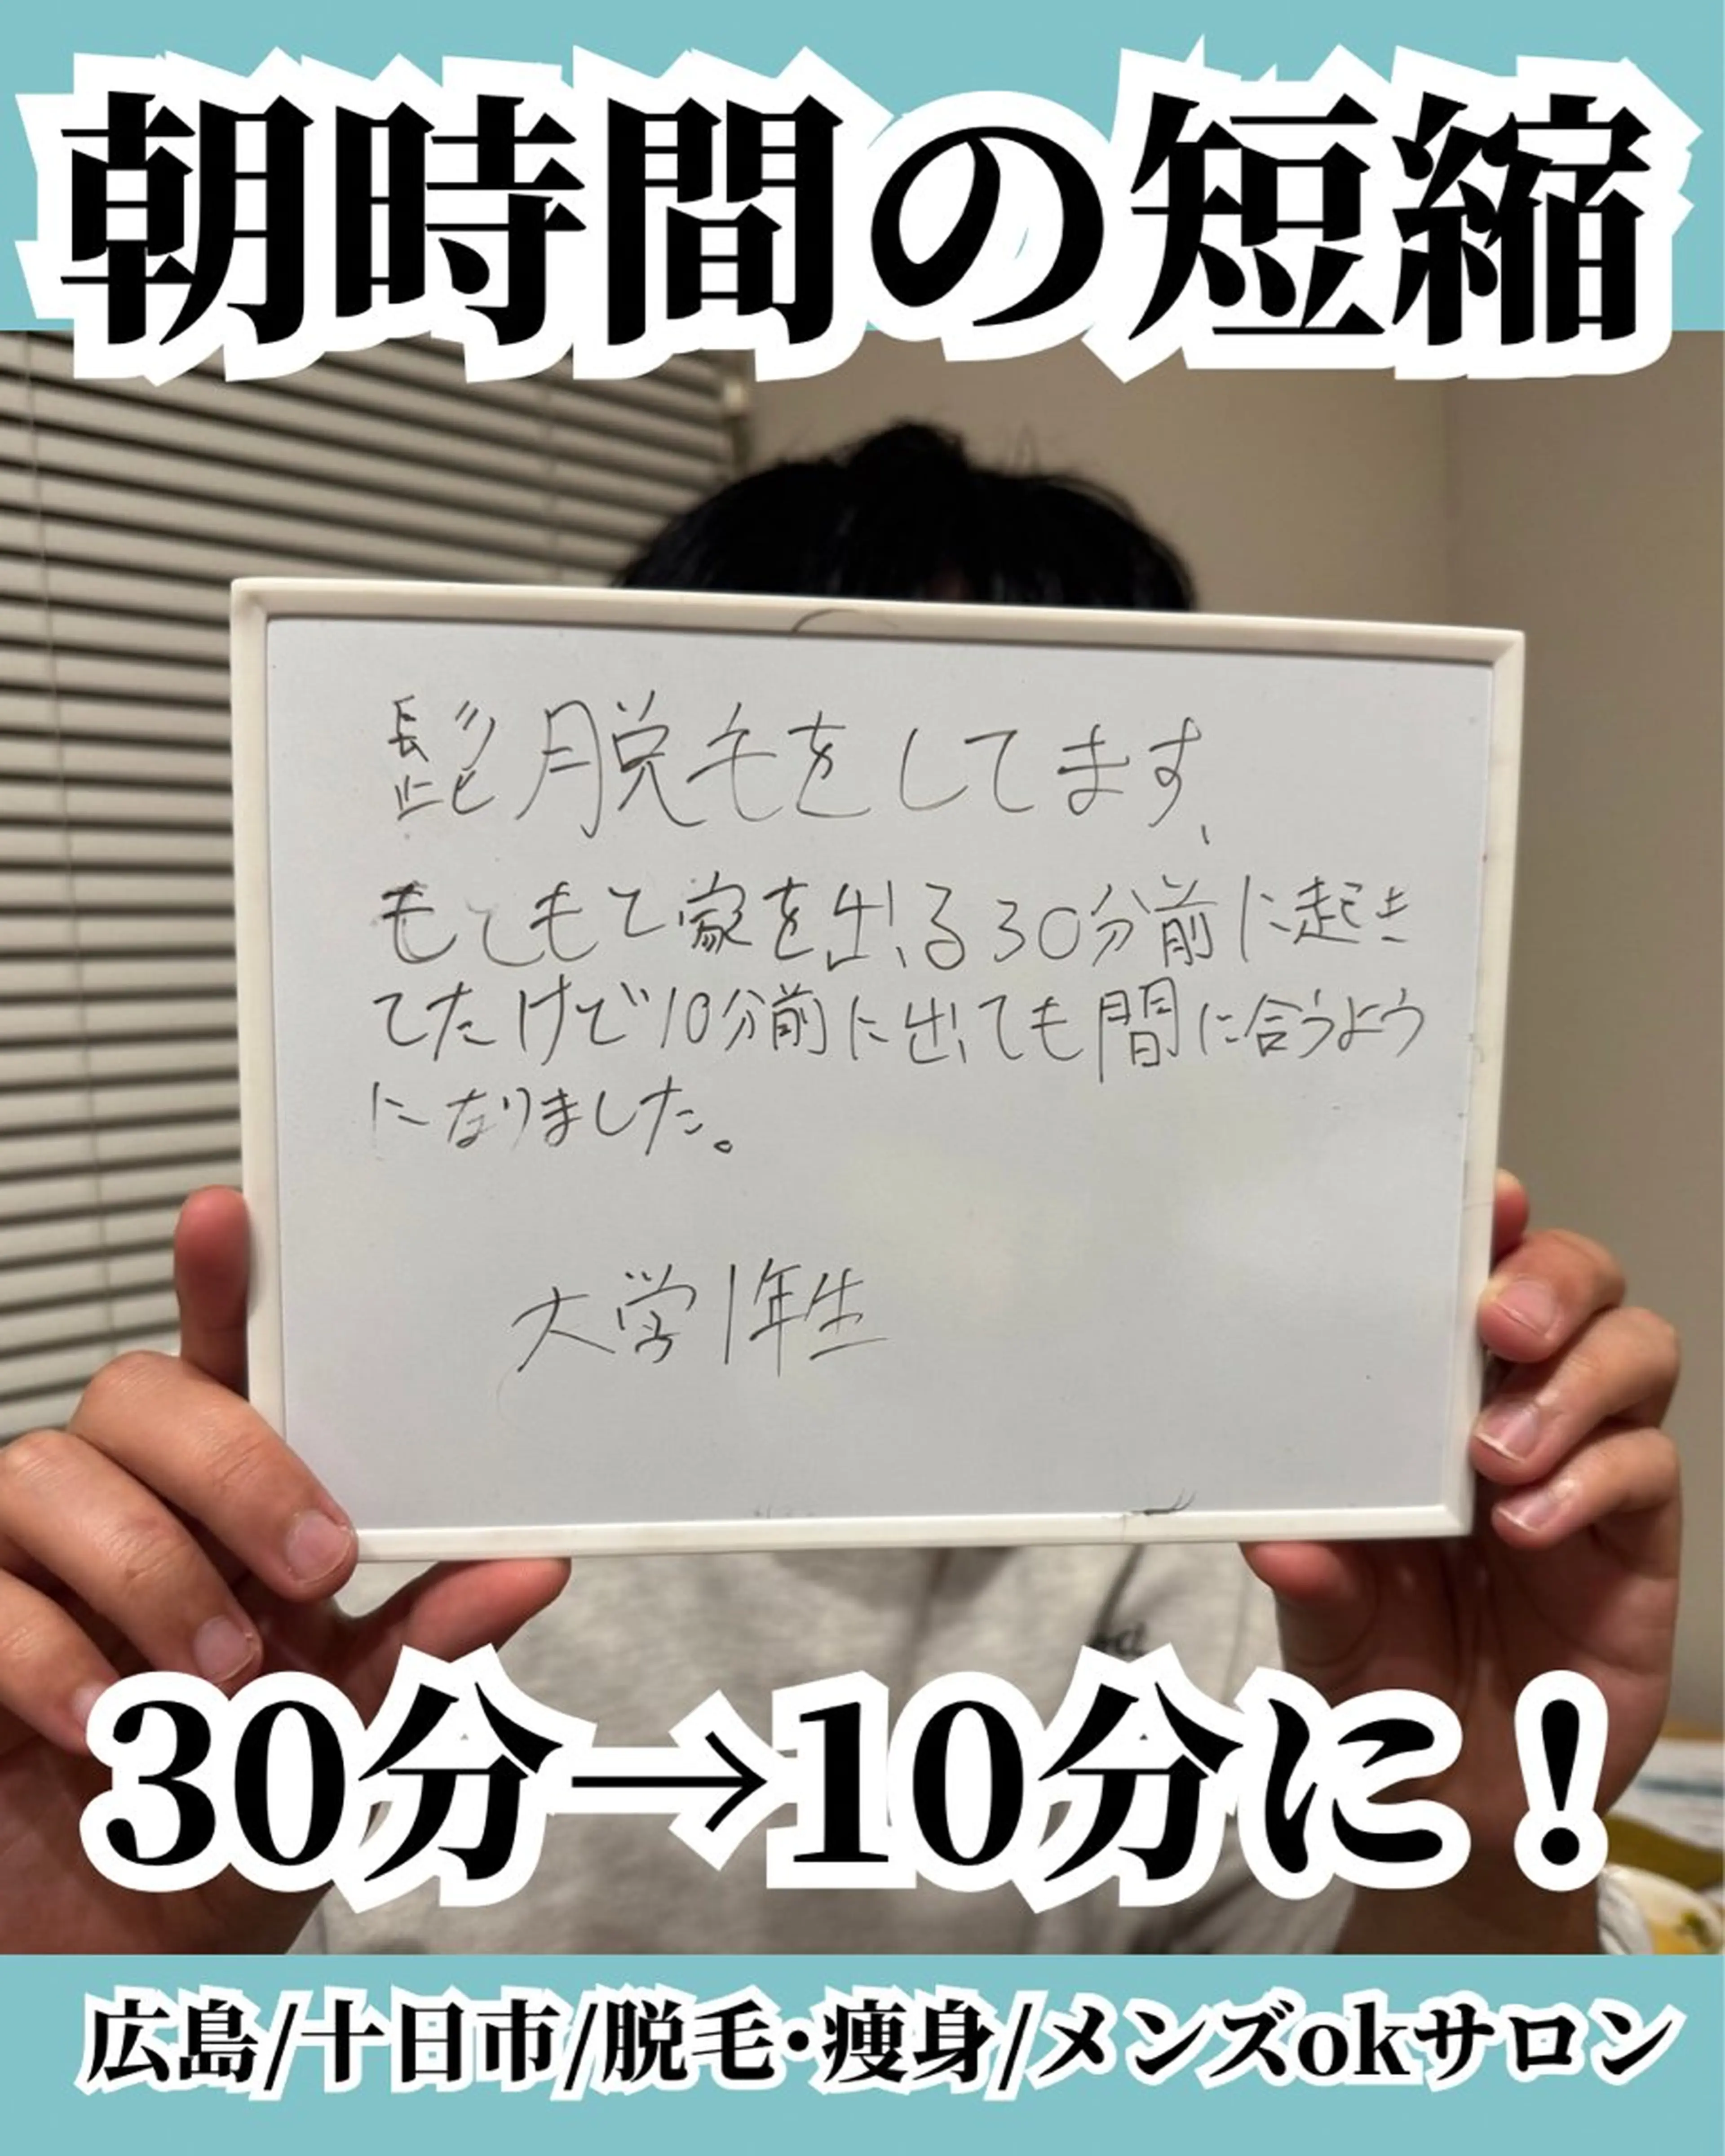 朝時間の短縮
髭脱毛をしてます、
もともと家を出る30分前に起き
てたけど10分前に出ても間に合うよう
になりました。
大学1年生
30分→10分に！
広島/十日市/脱毛・痩身/メンズokサロン